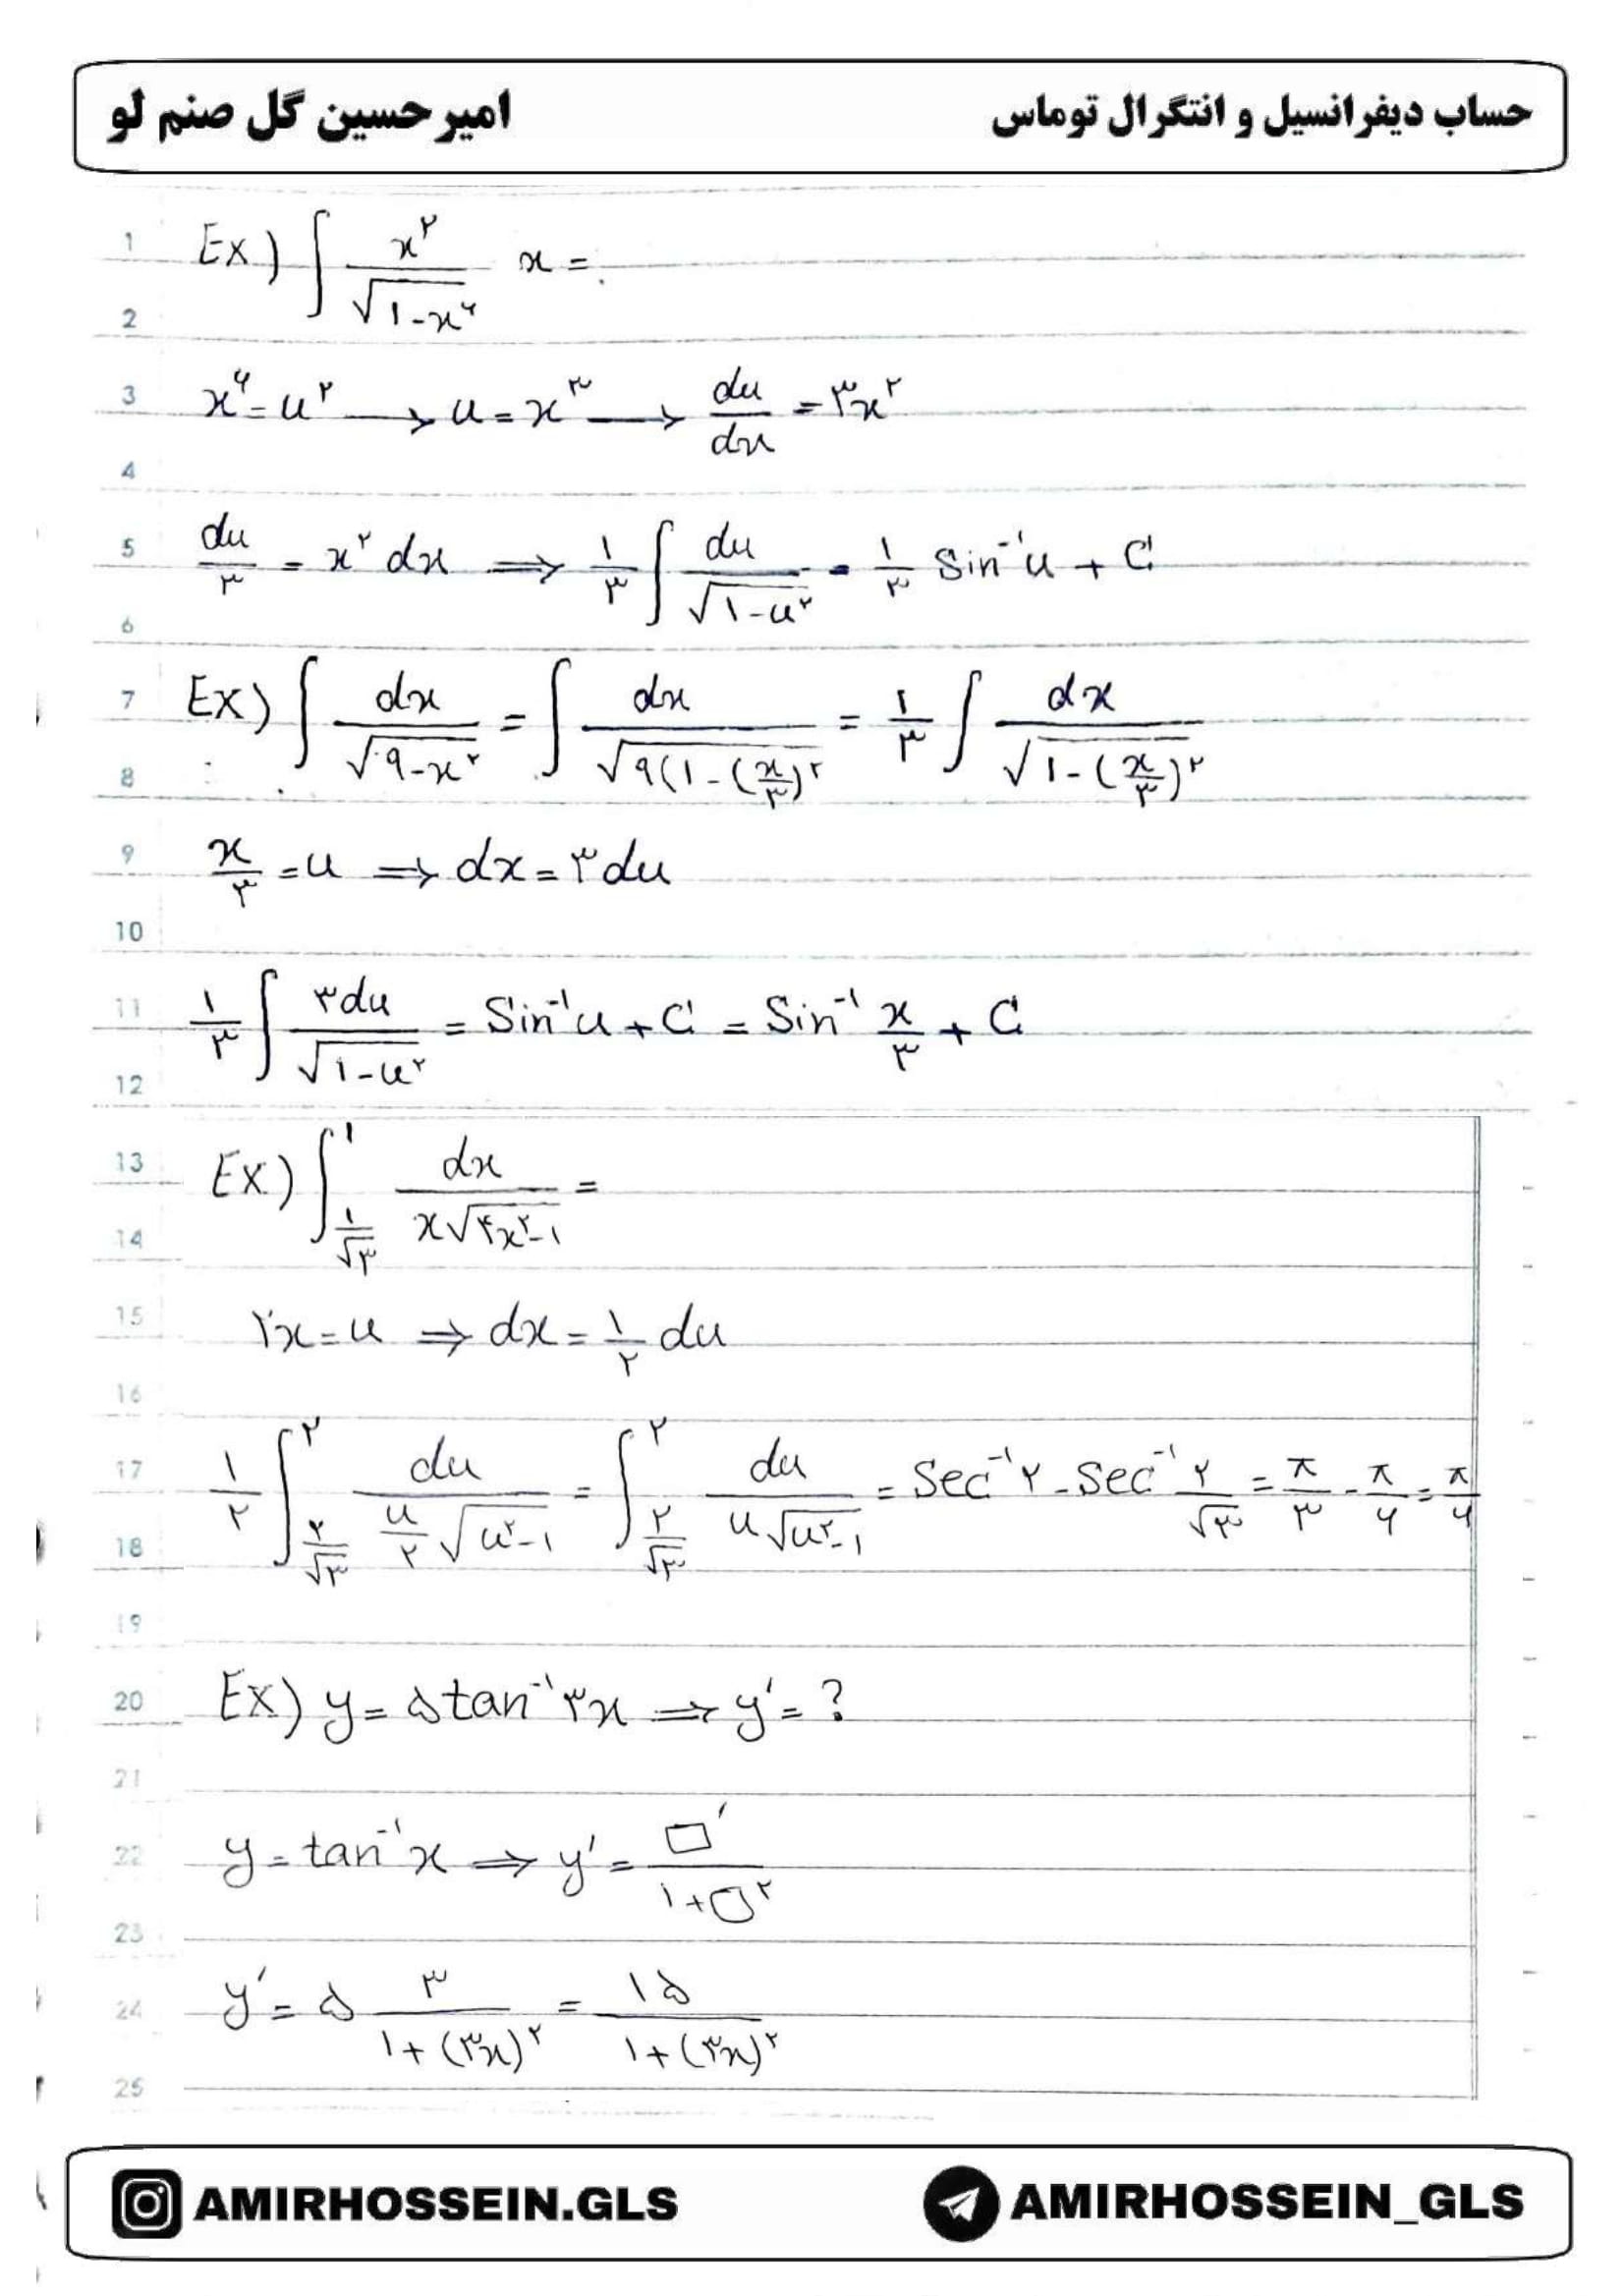 حساب دیفرانسیل و انتگرال توماس
امیرحسین گل صنم لو
1 Ex) ∫ x^۲ / √(۱-x^۶) x =
2
3 x^۶ = u^۲ → u = x^۳ → du/dx = ۳x^۲
4
5 du/۳ = x^۲ dx ⇒ ۱/۳ ∫ du/√(۱-u^۲) = ۱/۳ Sin^-۱ u + C
6
7 Ex) ∫ dx/√(۹-x^۲) = ∫ dx/√(۹(۱-(x/۳)^۲ = ۱/۳ ∫ dx/√(۱-(x/۳)^۲)
8
9 x/۳ = u ⇒ dx = ۳du
10
11 ۱/۳ ∫ ۳du/√(۱-u^۲) = Sin^-۱ u + C = Sin^-۱ x/۳ + C
12
13 Ex) ∫_{۱/√۳}^{۱} dx / x√(۴x^۲-۱) =
14
15 ۲x = u ⇒ dx = ۱/۲ du
16
17 ۱/۲ ∫_{۲/√۳}^{۲} du / (u/۲)√(u^۲-۱) = ∫_{۲/√۳}^{۲} du / u√(u^۲-۱) = Sec^-۱ ۲ - Sec^-۱ ۲/√۳ = π/۳ - π/۶ = π/۶
18
19
20 Ex) y = ۵tan^-۱ ۳x ⇒ y' = ?
21
22 y = tan^-۱ x ⇒ y' = □' / ۱+□^۲
23
24 y' = ۵ ۳/(۱+(۳x)^۲) = ۱۵/(۱+(۳x)^۲)
25
AMIRHOSSEIN.GLS
AMIRHOSSEIN_GLS